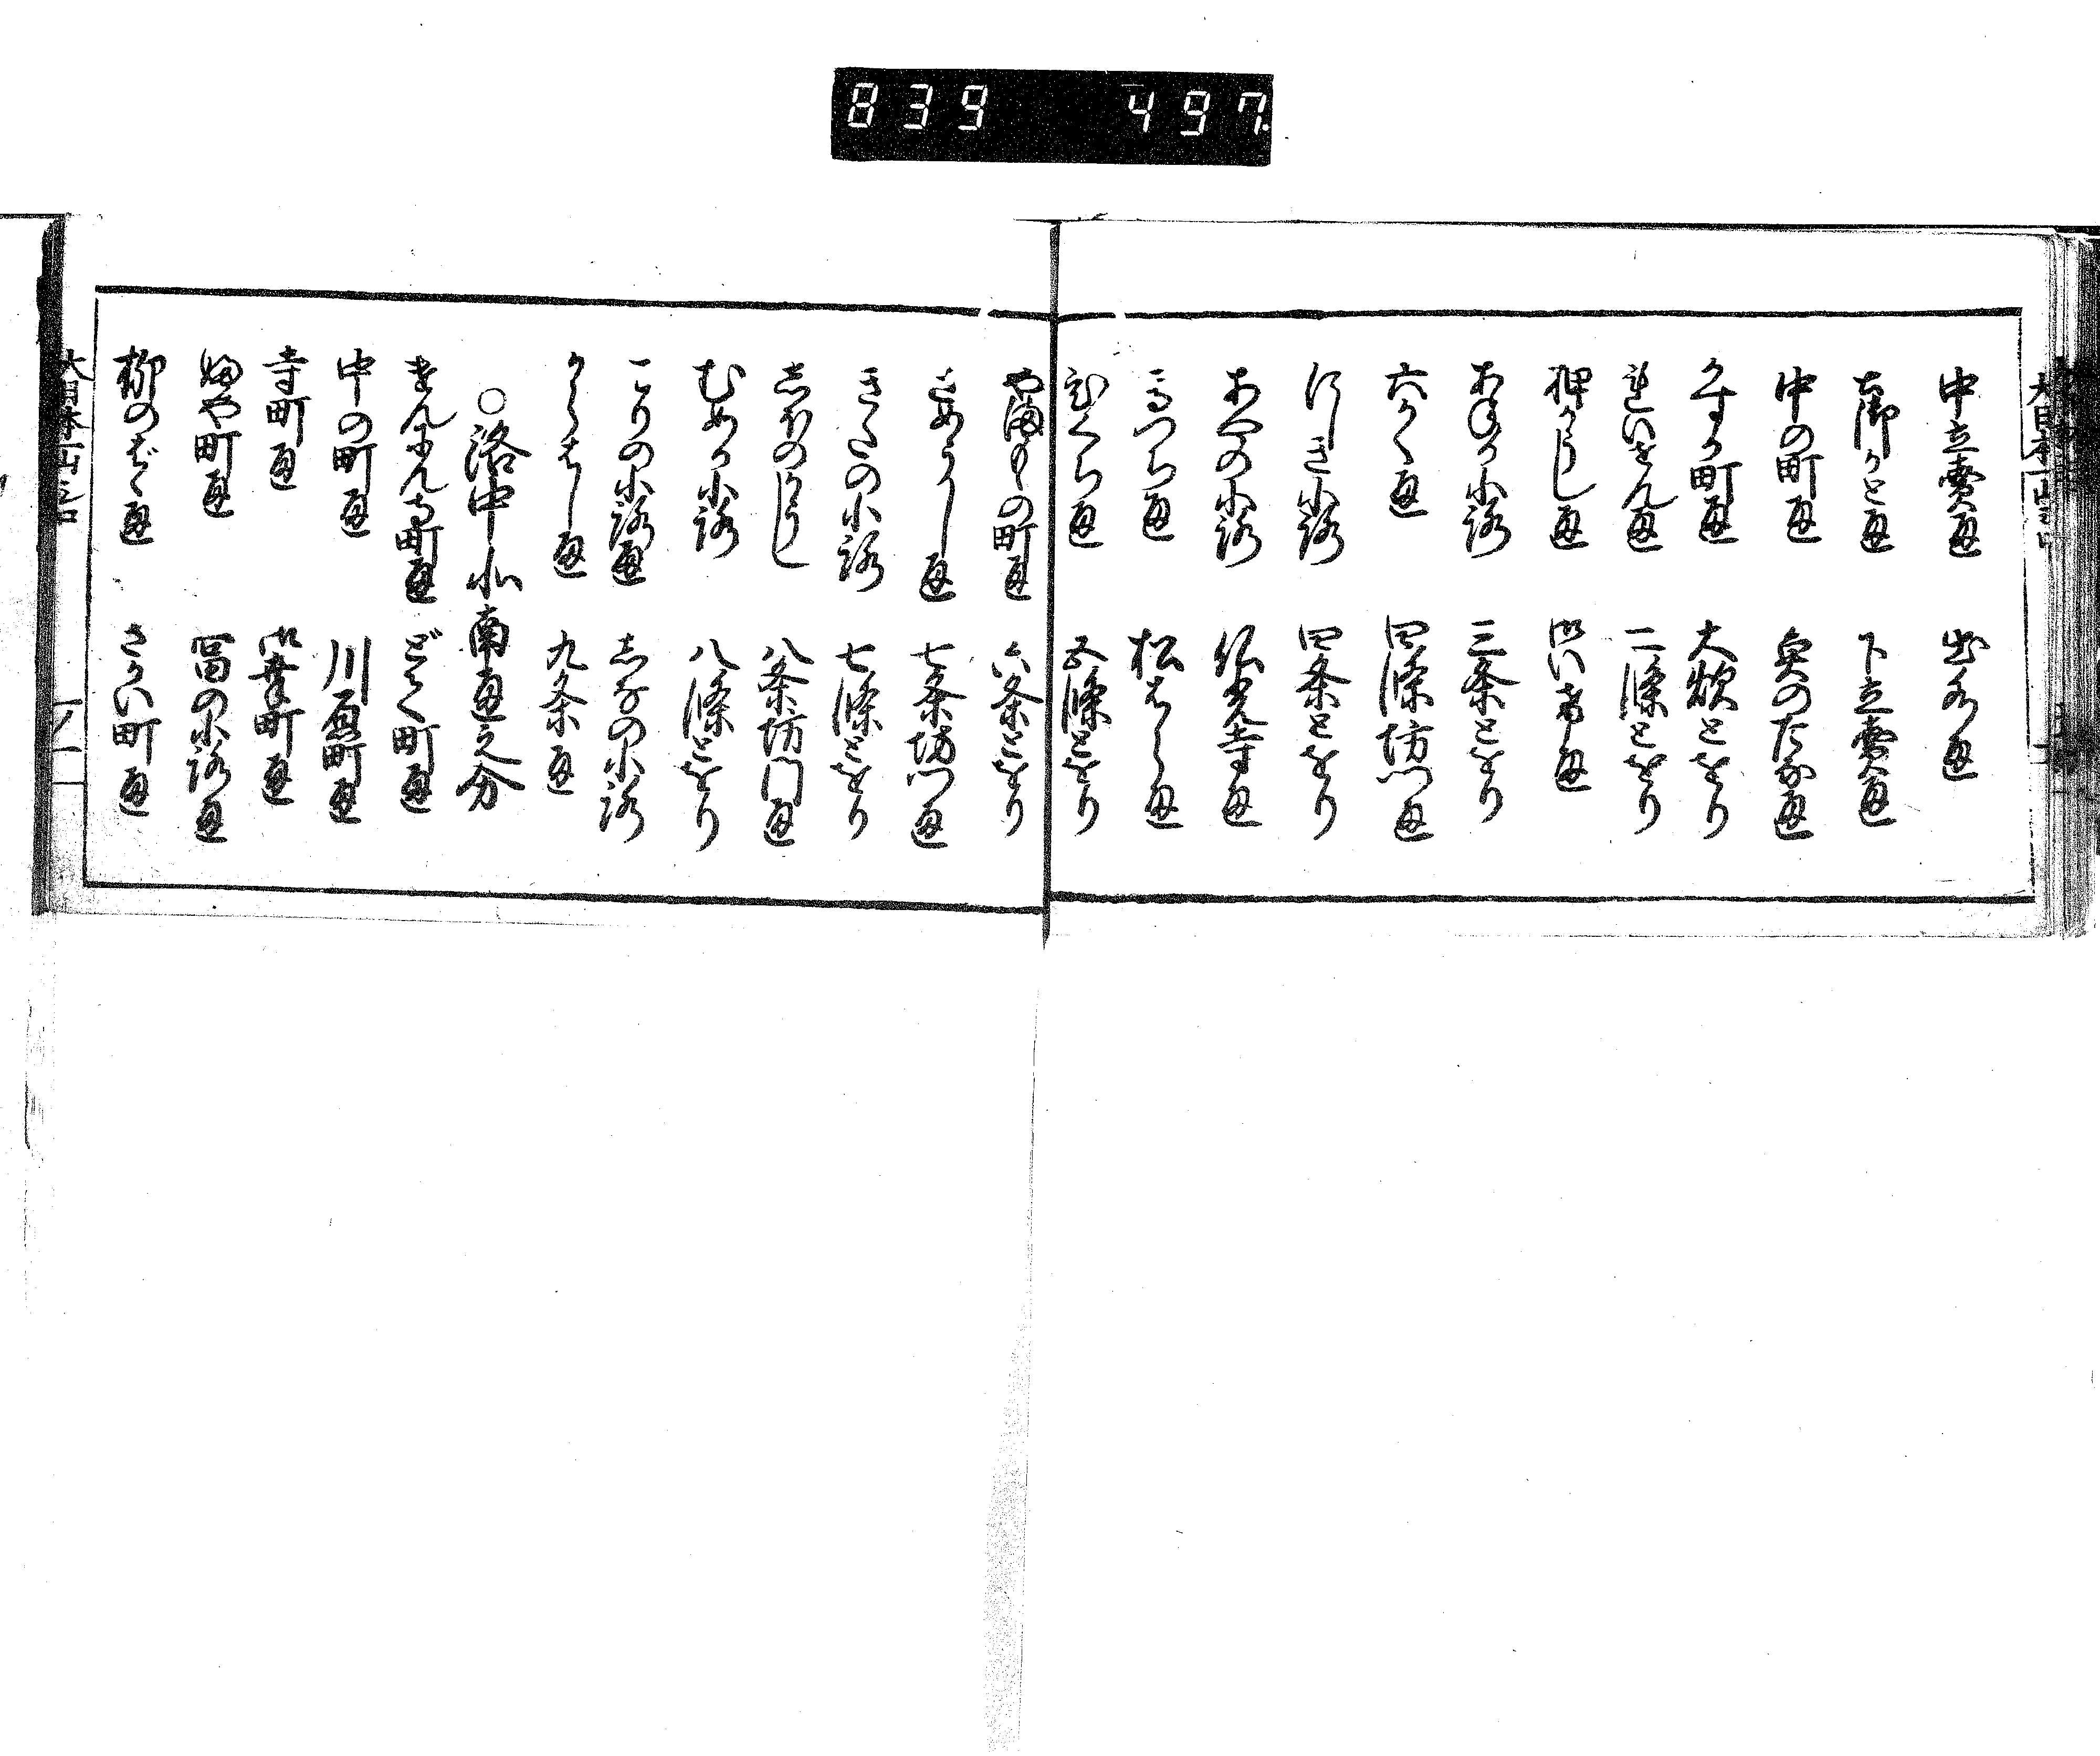 839 497.
中立賣通 出水通
土御かど通 下立賣通
中の町通 魚のたな通
かすが町通 大炊とをり
れいぜん通 二條とをり
押かうじ通 御い け通
あねが小路 三条とをり
六かく通 四條坊門通
にしき小路 四条とをり
あやの小路 仏光寺通
高つぢ通 松ばら通
ひぐち通 五條とをり
や満もの町通 六条とをり
さめうし通 七条坊門通
きたの小路 七條とをり
しほのかうじ 八条坊門通
むめが小路 八條とをり
こりの小路通 しなの小路
からはし通 九条通
○洛中北南通之分
きんふん寺町通 どて町通
中の町通 川原町通
寺町通 御幸町通
婦や町通 冨の小路通
柳のばゞ通 さかい町通